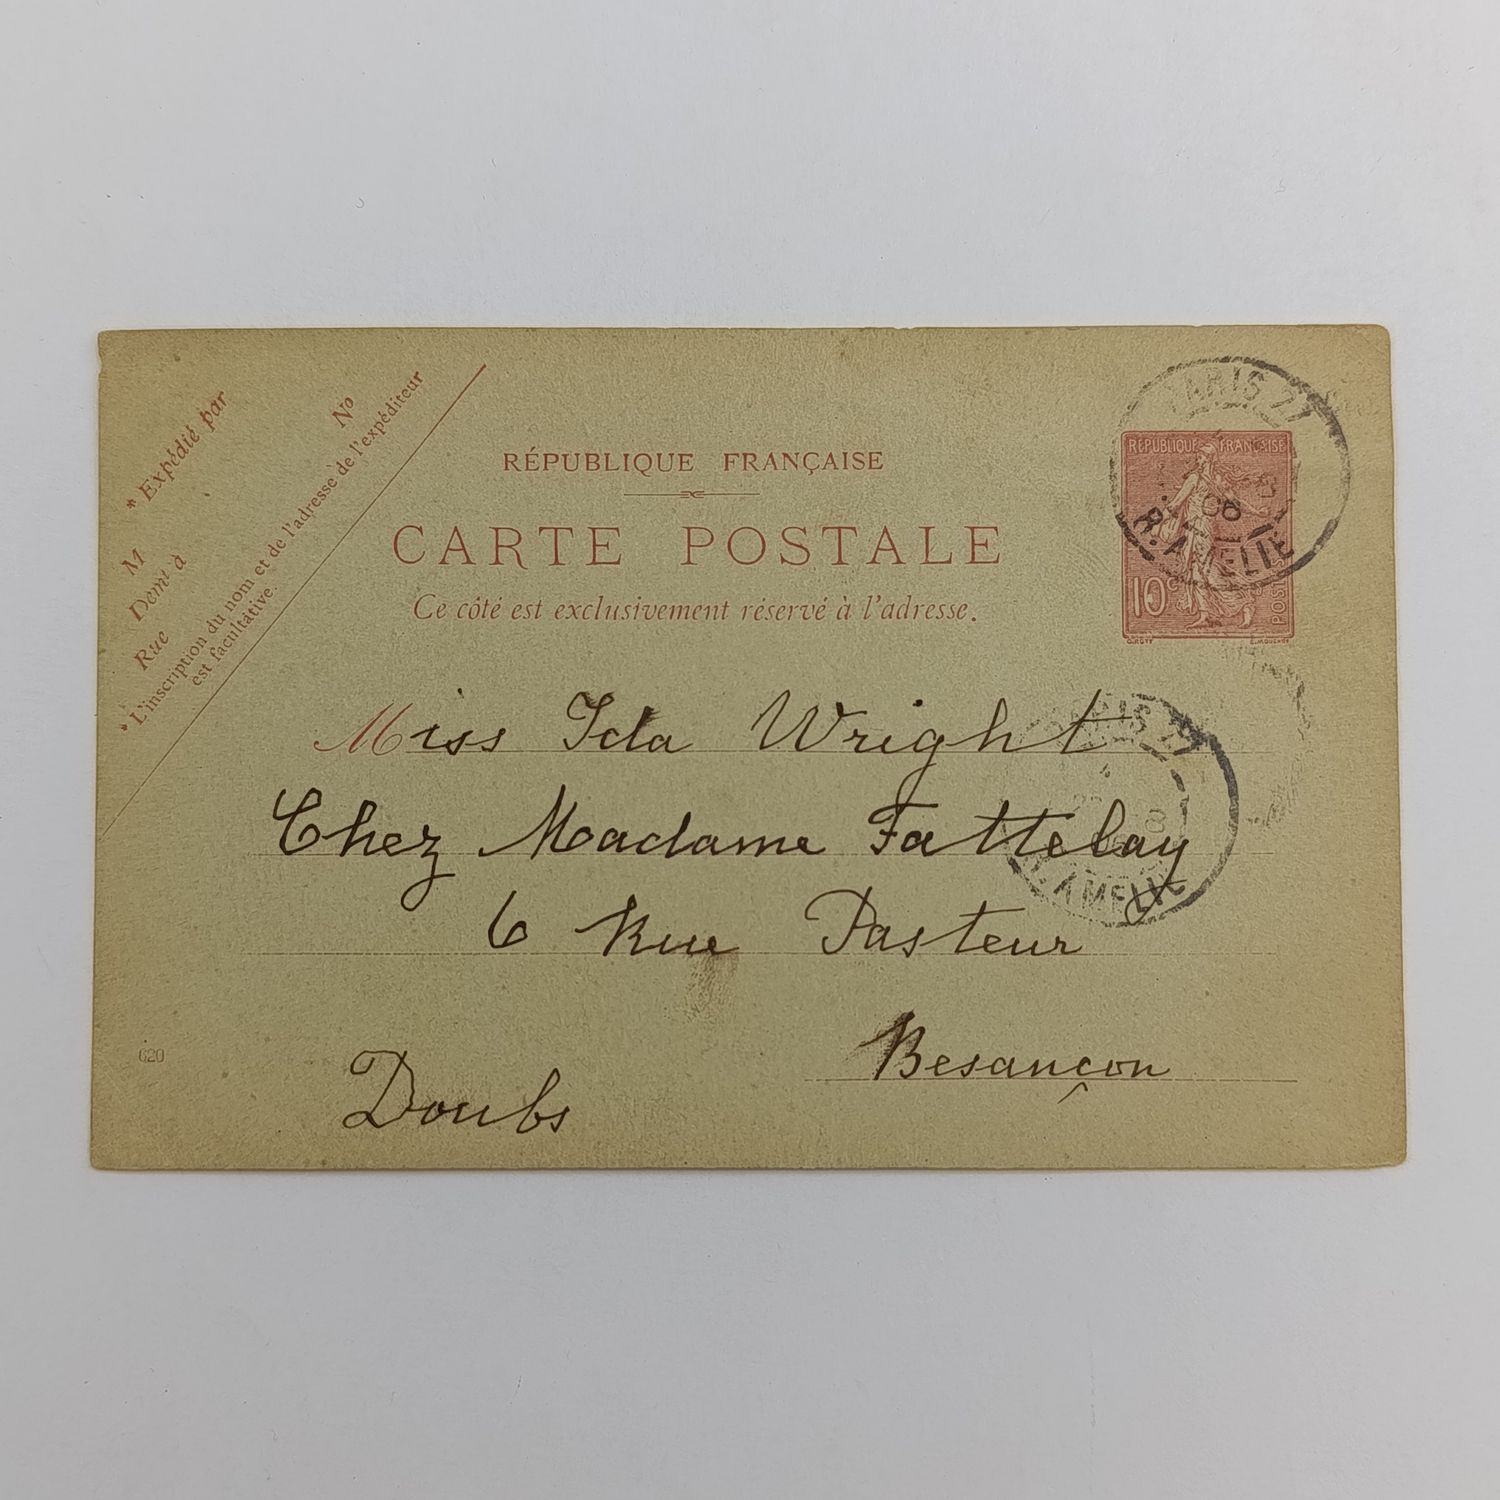 * Expédié par
M Nº
Demt à
Rue
* L'inscription du nom et de l'adresse de l'expéditeur
est facultative.
RÉPUBLIQUE FRANÇAISE
CARTE POSTALE
Ce côté est exclusivement réservé à l'adresse.
PARIS 77
RÉPUBLIQUE FRANÇAISE
06
R. AMELIE
10c
POSTES
O. ROTY E. MOUCHON
Miss Ida Wright
Chez Madame Fattelay
6 Rue Pasteur
Besançon
Doubs
PARIS 77
R. AMELIE
620